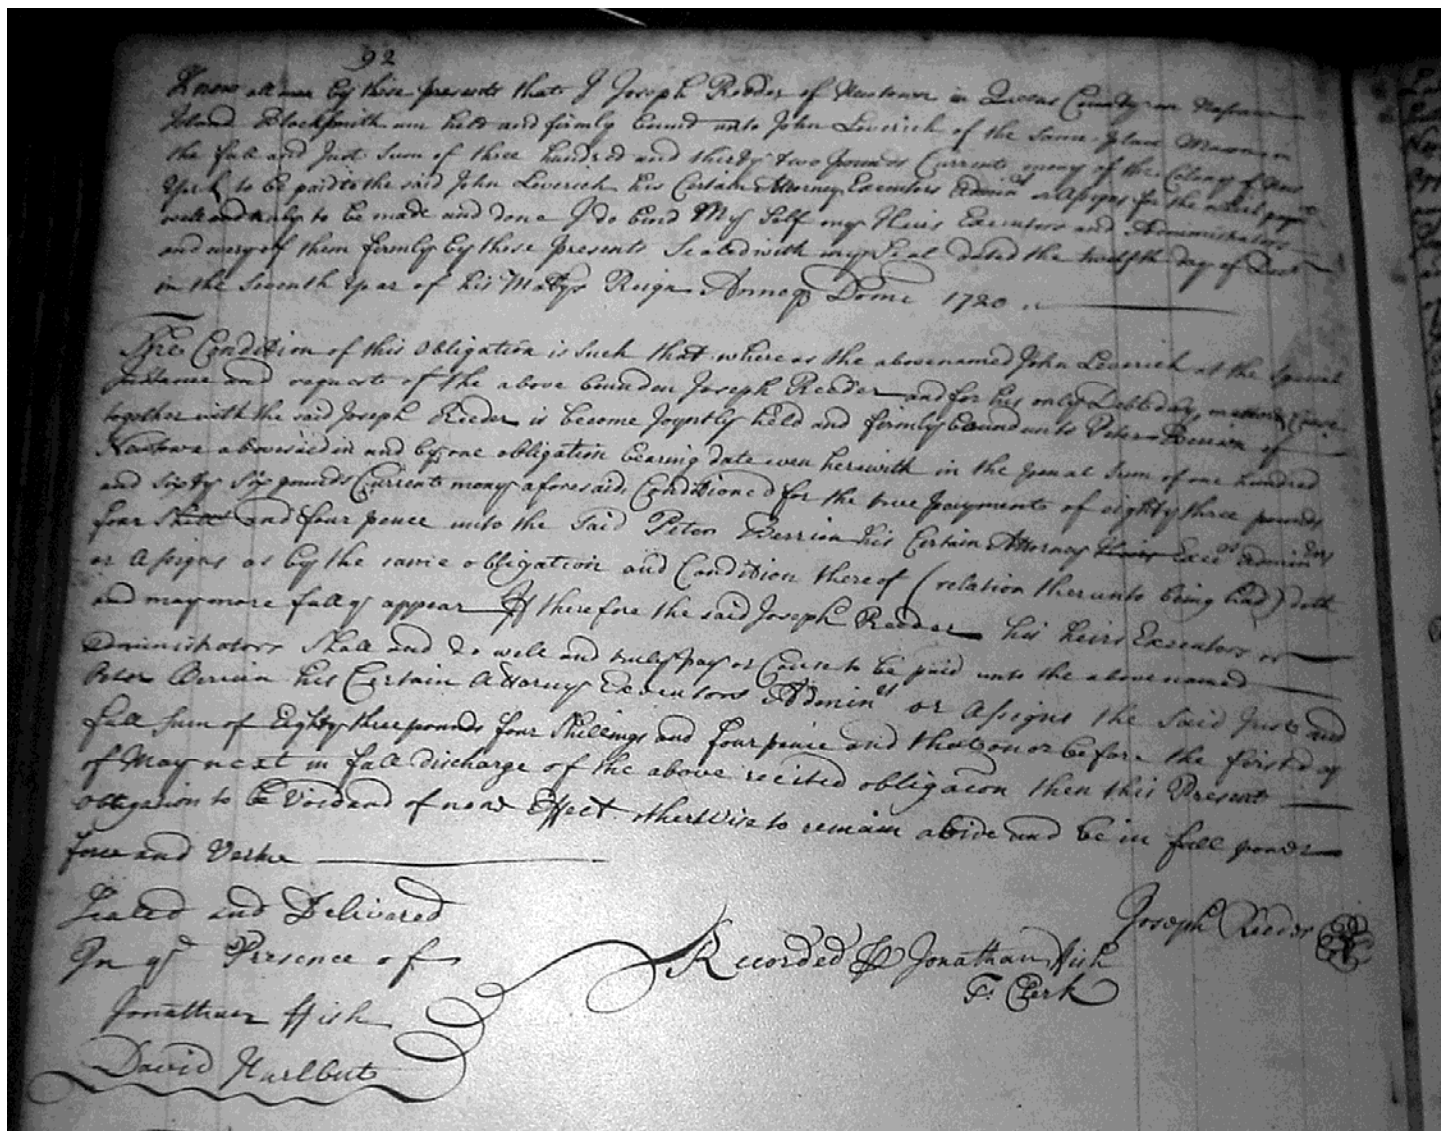 92
Know all men by these presents that I Joseph Reeder of Newtown in Queens County on Nassau
Island Blacksmith am held and firmly bound unto John Leverich of the same place Mason in
the full and Just Sum of three hundred and thirty two pounds Currant mony of the Colony of New
York to be paid to the said John Leverich his Certain Attorney Executors Admin rs or Assigns for the which paym t
well and truly to be made and done I do bind My Self my Heirs Executors and Administrators
and every of them firmly by these presents Sealed with my Seal dated the twelfth day of
in the Seventh year of his Maties Reign Annoq Domi 1720
The Condition of this obligation is Such that where as the abovenamed John Leverich at the Special
Instance and request of the above bounden Joseph Reeder and for his only Debt
together with the said Joseph Reeder is become Joyntly held and firmly bound unto Peter Berrien of
Newtown abovesaid in and by one obligation bearing date even herewith in the penal Sum of one hundred
and Sixty Six pounds Currant mony aforesaid Conditioned for the true payment of eighty three pounds
four Shill and four pence unto the Said Peter Berrien his Certain Attorney Heirs Exec rs Admin rs
or Assigns as by the same obligation and Condition thereof (relation therunto being had) doth
and may more fully appear If therefore the said Joseph Reeder his heirs Executors or
Administrators Shall and do well and truly pay or Cause to be paid unto the abovenamed
Peter Berrien his Certain Attorney Executors Admin rs or Assigns the Said Just and
full Sum of Eighty three pounds four Shillings and four pence and that on or before the first d of
of May next in full discharge of the above recited obligacon then this Present
obligation to be Void and of none Effect otherwise to remain abide and be in full power
force and Vertue
Sealed and Delivared
In ye Presence of
Joseph Reeder
Recorded p Jonathan Fish
T: Clerk
Jonathan Fish
David Hurlbut